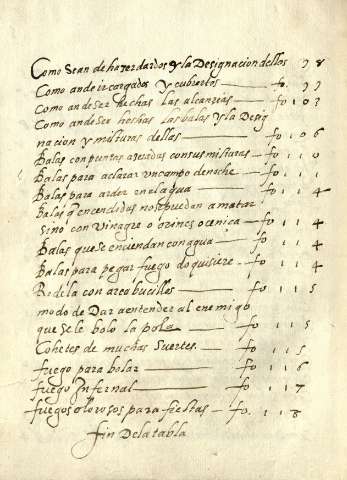 Como sean de hazer dardos y la Designacion dellos 98
Como an de ir cargados y cubiertos fo. 99
Como an de ser hechas las alcanzias fo 103
Como an de ser hechas las balas y la Desig
nacion y misturas dellas fo 106
Balas con puntas aseradas con sus misturas fo 110
Balas para aclarar un campo de noche fo 111
Balas para arder en el agua fo 114
Balas q encendidas no se puedan amatar
Sino con Vinagre o orines o cenica fo 114
Balas que se enciendan con agua fo 114
Balas para pegar fuego do quisiere fo 114
Rodela con arcobucilles fo 115
modo de Dar a entender al enemigo
que se le bolo la pol fo 115
Cohetes de muchas Suertes fo 115
fuego para bolar fo 116
fuego Infernal fo 117
fuegos olorosos para fiestas fo. 118
fin De la tabla